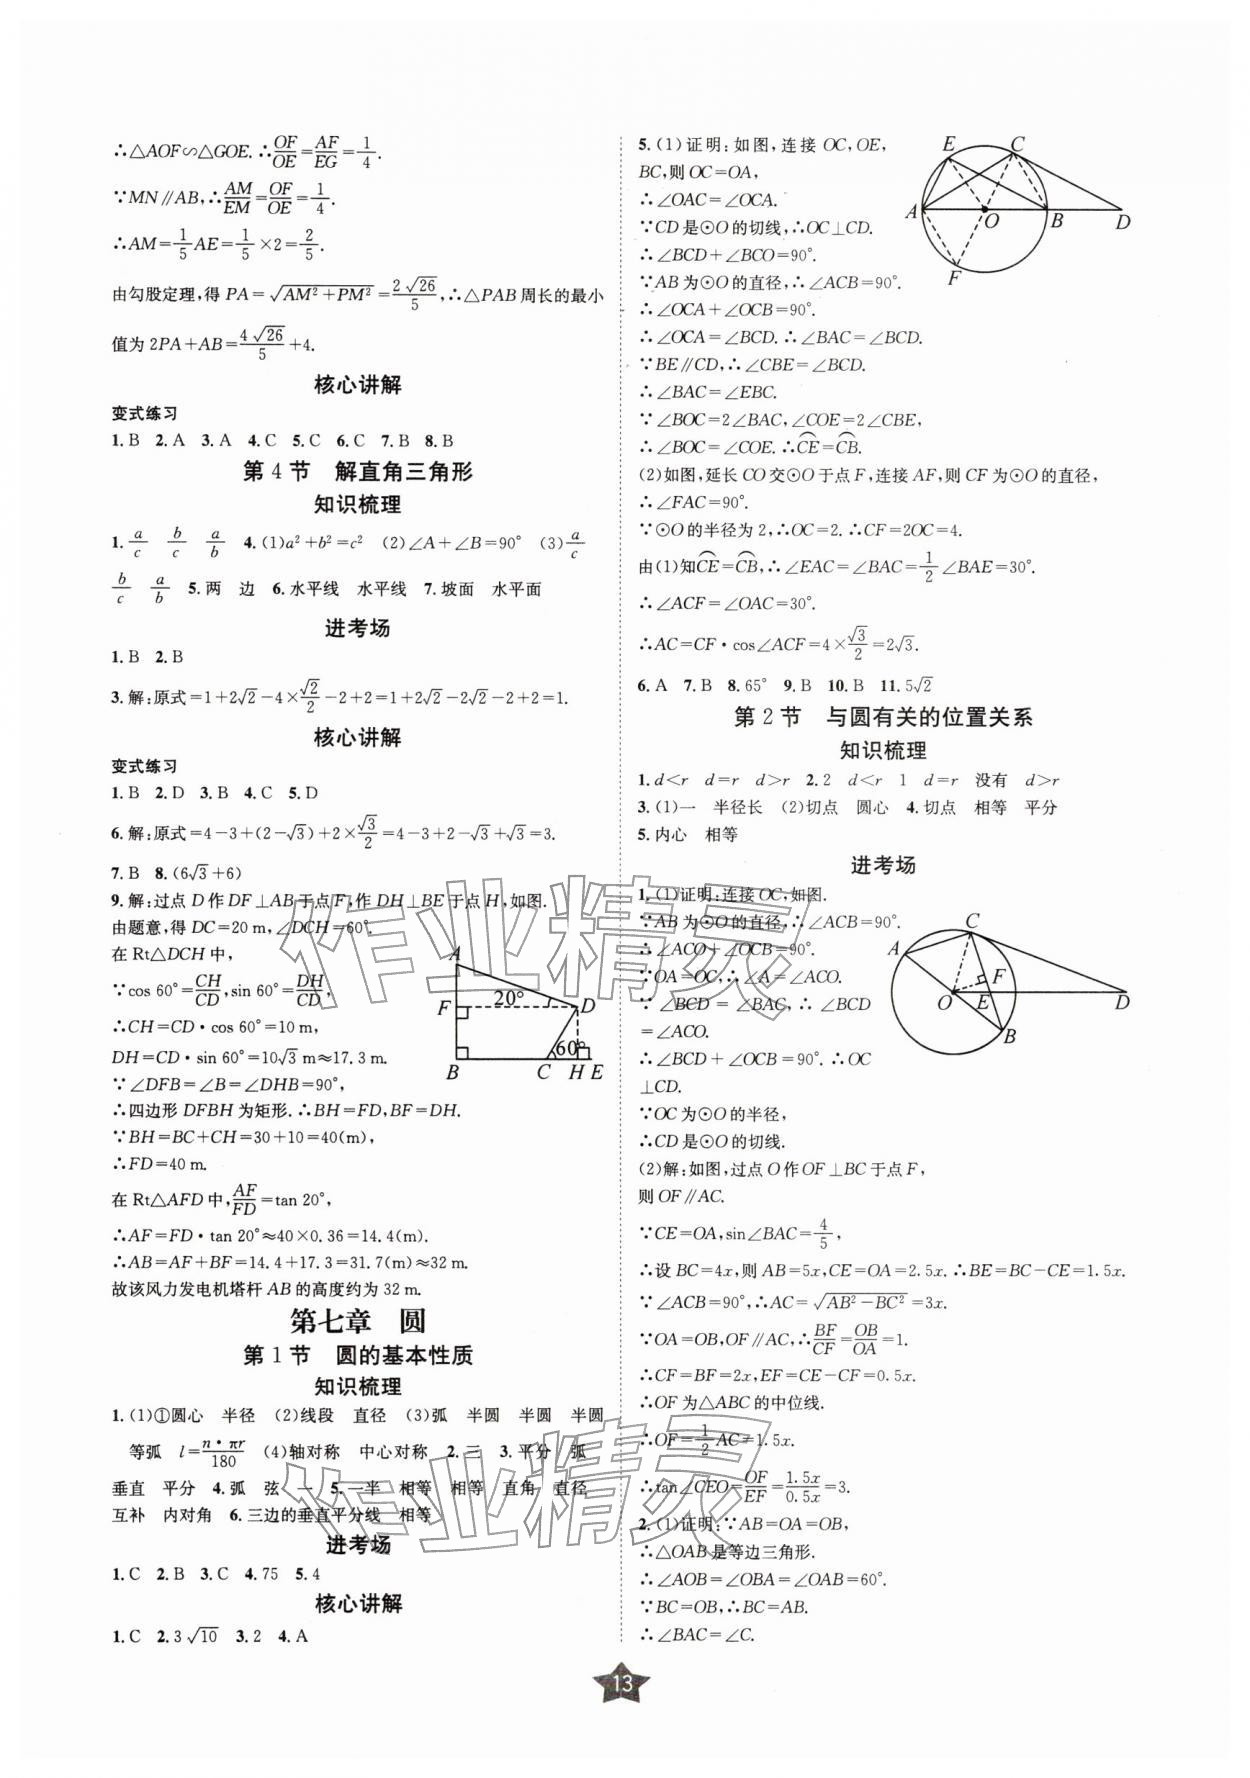 ∴△AOF∽△GOE.∴OF/OE=AF/EG=1/4.
∵MN∥AB,∴AM/EM=OF/OE=1/4.
∴AM=1/5AE=1/5×2=2/5.
由勾股定理,得PA=√(AM²+PM²)=2√26/5,∴△PAB周长的最小
值为2PA+AB=4√26/5+4.
核心讲解
变式练习
1.B 2.A 3.A 4.C 5.C 6.C 7.B 8.B
第4节 解直角三角形
知识梳理
1.a/c b/c a/b 4.(1)a²+b²=c² (2)∠A+∠B=90° (3)a/c
b/c a/b 5.两 边 6.水平线 水平线 7.坡面 水平面
进考场
1.B 2.B
3.解:原式=1+2√2-4×√2/2-2+2=1+2√2-2√2-2+2=1.
核心讲解
变式练习
1.B 2.D 3.B 4.C 5.D
6.解:原式=4-3+(2-√3)+2×√3/2=4-3+2-√3+√3=3.
7.B 8.(6√3+6)
9.解:过点D作DF⊥AB于点F,作DH⊥BE于点H,如图.
由题意,得DC=20 m,∠DCH=60°.
在Rt△DCH中,
∵cos 60°=CH/CD,sin 60°=DH/CD,
∴CH=CD·cos 60°=10 m,
DH=CD·sin 60°=10√3 m≈17.3 m.
∵∠DFB=∠B=∠DHB=90°,
∴四边形DFBH为矩形.∴BH=FD,BF=DH.
∵BH=BC+CH=30+10=40(m),
∴FD=40 m.
在Rt△AFD中,AF/FD=tan 20°,
∴AF=FD·tan 20°≈40×0.36=14.4(m).
∴AB=AF+BF=14.4+17.3=31.7(m)≈32 m.
故该风力发电机塔杆AB的高度约为32 m.
A
F
20°
D
60°
B
C
H
E
第七章 圆
第1节 圆的基本性质
知识梳理
1.(1)①圆心 半径 (2)线段 直径 (3)弧 半圆 半圆 半圆
等弧 l=n·πr/180 (4)轴对称 中心对称 2.三 3.平分 弧
垂直 平分 4.弧 弦 一 5.一半 相等 相等 直角 直径
互补 内对角 6.三边的垂直平分线 相等
进考场
1.C 2.B 3.C 4.75 5.4
核心讲解
1.C 2.3√10 3.2 4.A
5.(1)证明:如图,连接OC,OE,
BC,则OC=OA,
∴∠OAC=∠OCA.
∵CD是⊙O的切线,∴OC⊥CD.
∴∠BCD+∠BCO=90°.
∵AB为⊙O的直径,∴∠ACB=90°.
∴∠OCA+∠OCB=90°.
∴∠OCA=∠BCD.∴∠BAC=∠BCD.
∵BE∥CD,∴∠CBE=∠BCD.
∴∠BAC=∠EBC.
∵∠BOC=2∠BAC,∠COE=2∠CBE,
∴∠BOC=∠COE.∴⌒CE=⌒CB.
(2)如图,延长CO交⊙O于点F,连接AF,则CF为⊙O的直径,
∴∠FAC=90°.
∵⊙O的半径为2,∴OC=2.∴CF=2OC=4.
由(1)知⌒CE=⌒CB,∴∠EAC=∠BAC=1/2∠BAE=30°.
∴∠ACF=∠OAC=30°.
∴AC=CF·cos∠ACF=4×√3/2=2√3.
E
C
A
O
B
D
F
6.A 7.B 8.65° 9.B 10.B 11.5√2
第2节 与圆有关的位置关系
知识梳理
1.d<r d=r d>r 2.2 d<r 1 d=r 没有 d>r
3.(1)一 半径长 (2)切点 圆心 4.切点 相等 平分
5.内心 相等
进考场
1.(1)证明:连接OC,如图.
∵AB为⊙O的直径,∴∠ACB=90°.
∴∠ACO+∠OCB=90°.
∵OA=OC,∴∠A=∠ACO.
∵∠BCD=∠BAC,∴∠BCD
=∠ACO.
∴∠BCD+∠OCB=90°.∴OC
⊥CD.
∵OC为⊙O的半径,
∴CD是⊙O的切线.
(2)解:如图,过点O作OF⊥BC于点F,
则OF∥AC.
∵CE=OA,sin∠BAC=4/5,
∴设BC=4x,则AB=5x,CE=OA=2.5x.∴BE=BC-CE=1.5x.
∵∠ACB=90°,∴AC=√(AB²-BC²)=3x.
∵OA=OB,OF∥AC,∴BF/CF=OB/OA=1.
∴CF=BF=2x,EF=CE-CF=0.5x.
∴OF为△ABC的中位线.
∴OF=1/2AC=1.5x.
∴tan∠CEO=OF/EF=1.5x/0.5x=3.
A
C
O
F
E
B
D
2.(1)证明:∵AB=OA=OB,
∴△OAB是等边三角形.
∴∠AOB=∠OBA=∠OAB=60°.
∵BC=OB,∴BC=AB.
∴∠BAC=∠C.
作业精灵
作业精灵
13